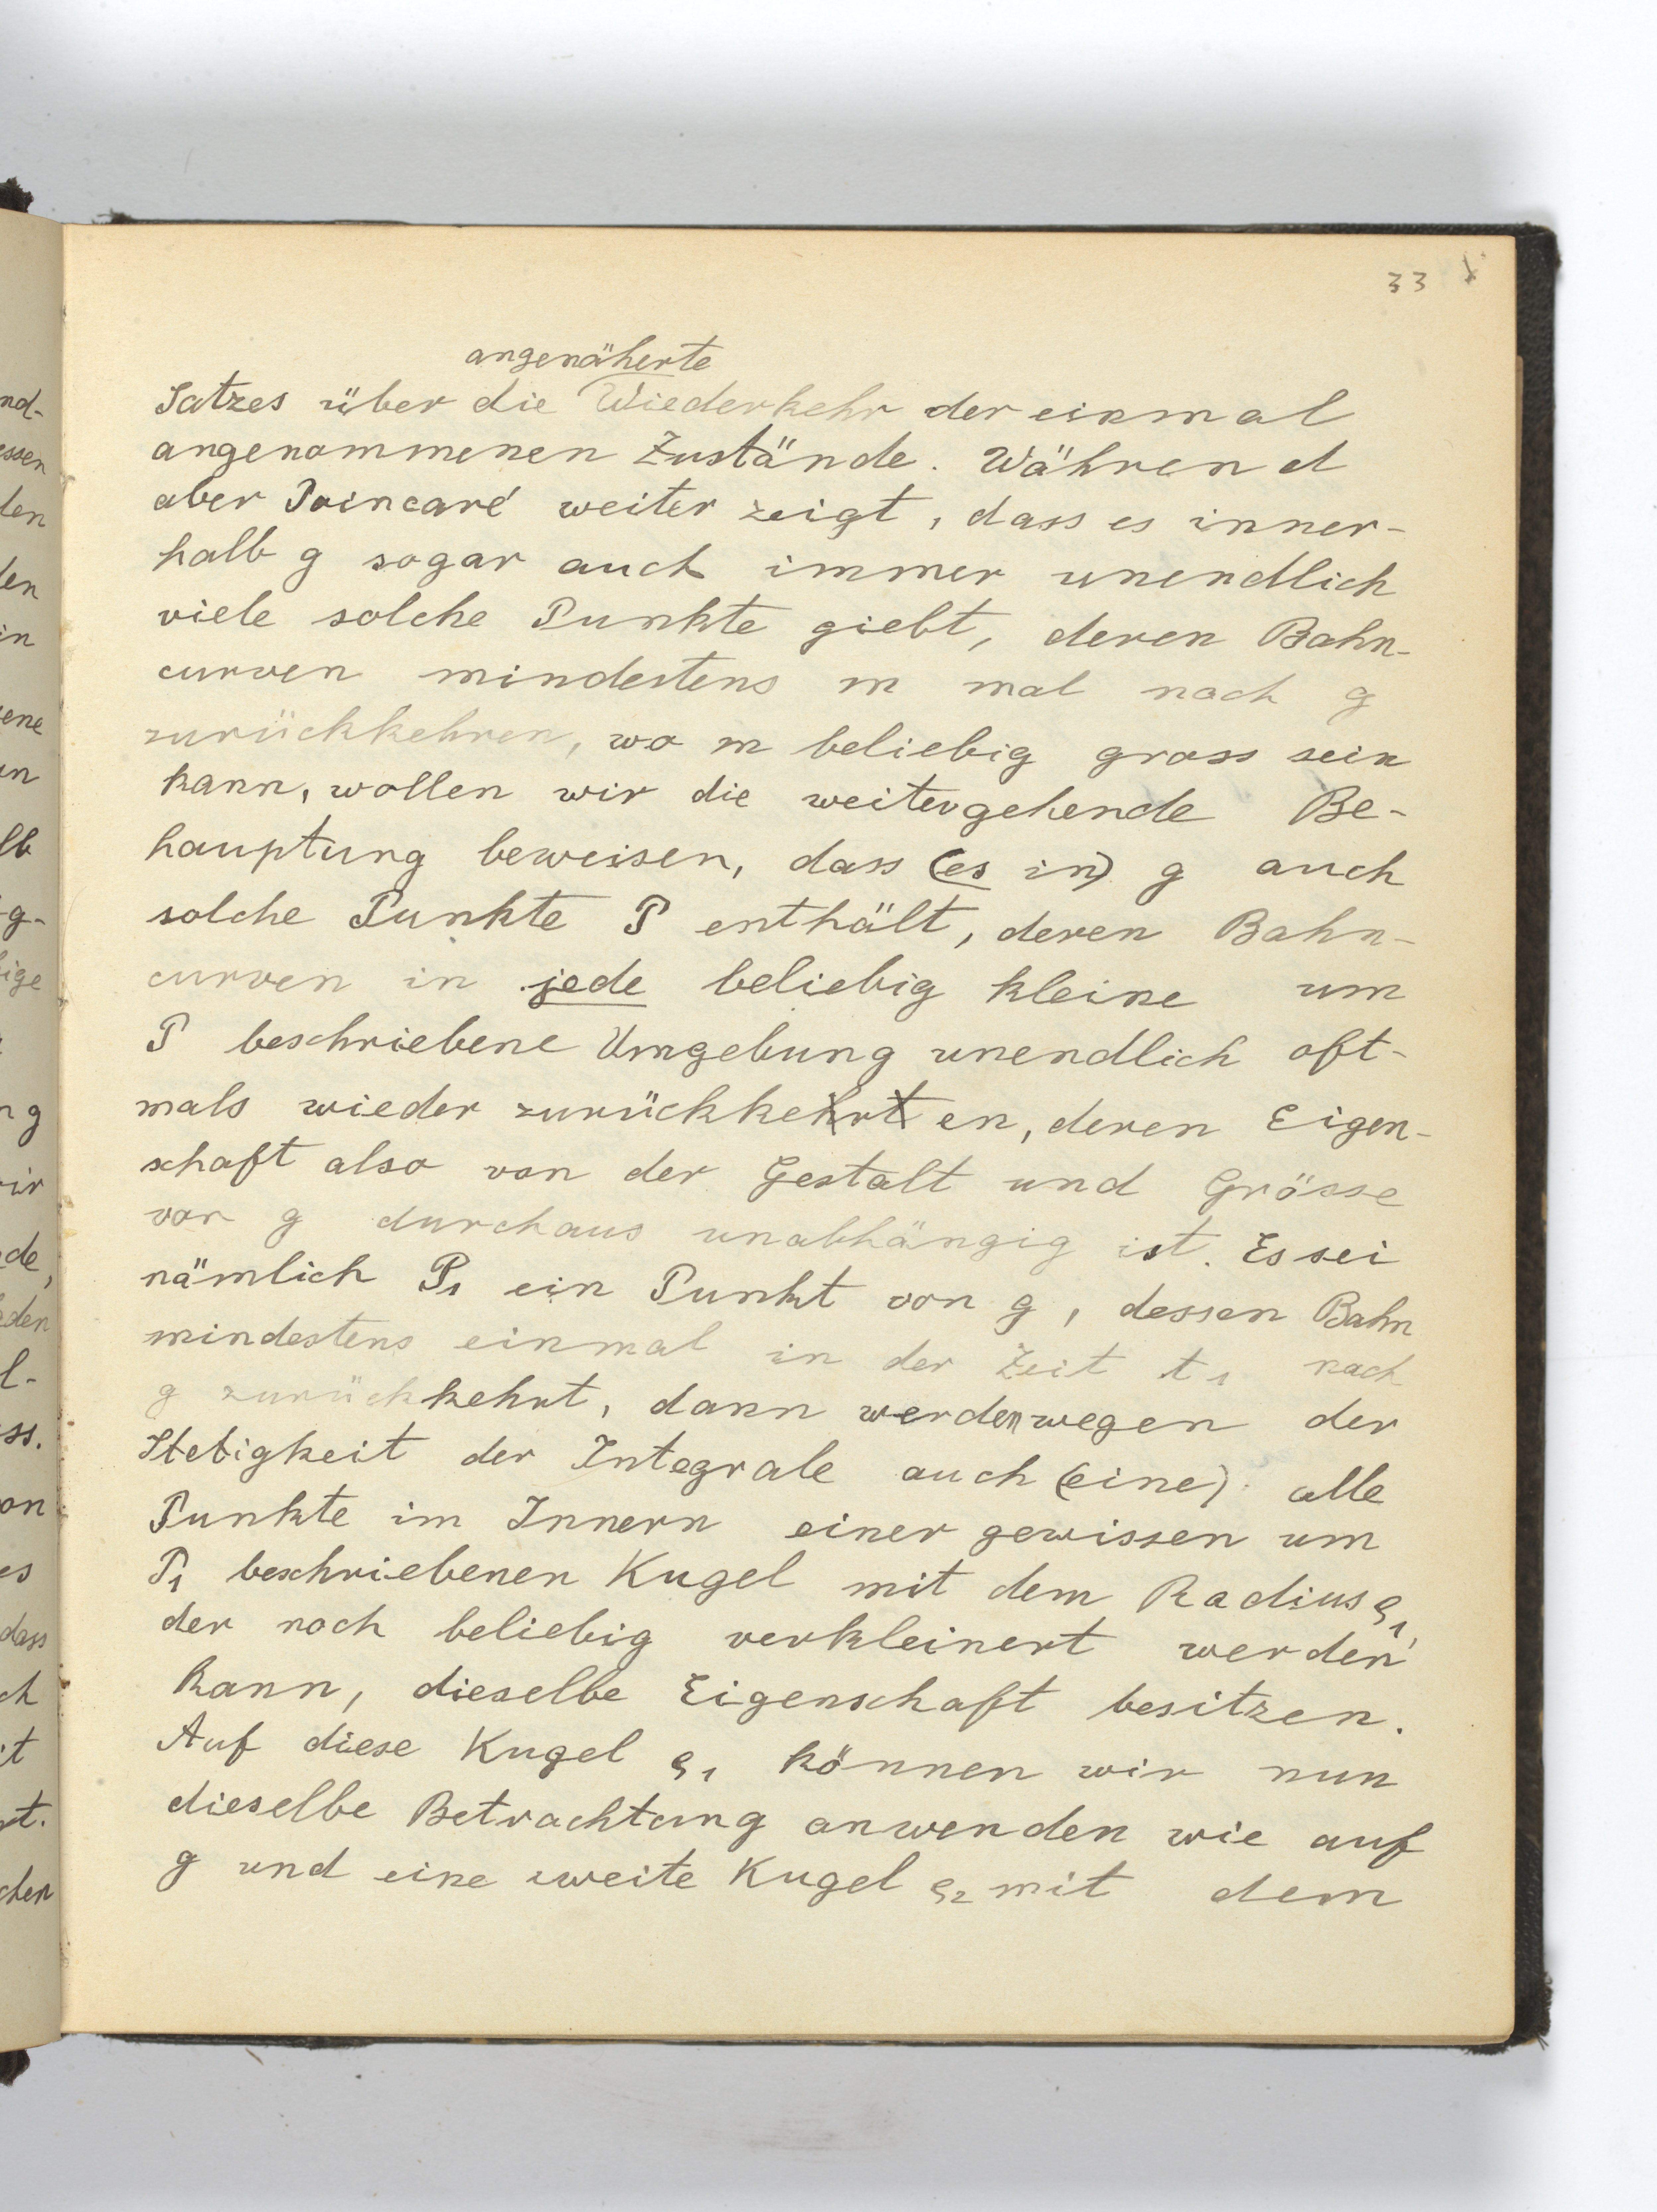 33
angenäherte
Satzes über die Wiederkehr der einmal
angenommenen Zustände. Während
aber Poincaré weiter zeigt, dass es inner-
halb g sogar auch immer unendlich
viele solche Punkte giebt, deren Bahn-
curven mindestens m mal nach g
zurückkehren, wo m beliebig gross sein
kann, wollen wir die weitergehende Be-
hauptung beweisen, dass (es in) g auch
solche Punkte P enthält, deren Bahn-
curven in jede beliebig kleine um
P beschriebene Umgebung unendlich oft-
mals wieder zurückkehrten, deren Eigen-
schaft also von der Gestalt und Grösse
von g durchaus unabhängig ist. Es sei
nämlich P1 ein Punkt von g, dessen Bahn
mindestens einmal in der Zeit t1 nach
g zurückkehrt, dann werden wegen der
Stetigkeit der Integrale auch (eine) alle
Punkte im Innern einer gewissen um
P1 beschriebenen Kugel mit dem Radius ϱ1,
der noch beliebig verkleinert werden
kann, dieselbe Eigenschaft besitzen.
Auf diese Kugel ϱ1 können wir nun
dieselbe Betrachtung anwenden wie auf
g und eine zweite Kugel ϱ2 mit dem